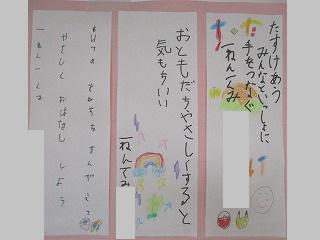 たすけあう
みんなといっしょに
手をつなぐ
一ねん一くみ
おともだちやさしくすると
気もちいい
一ねん一くみ
やさしく おはなし しよう
一ねん一くみ